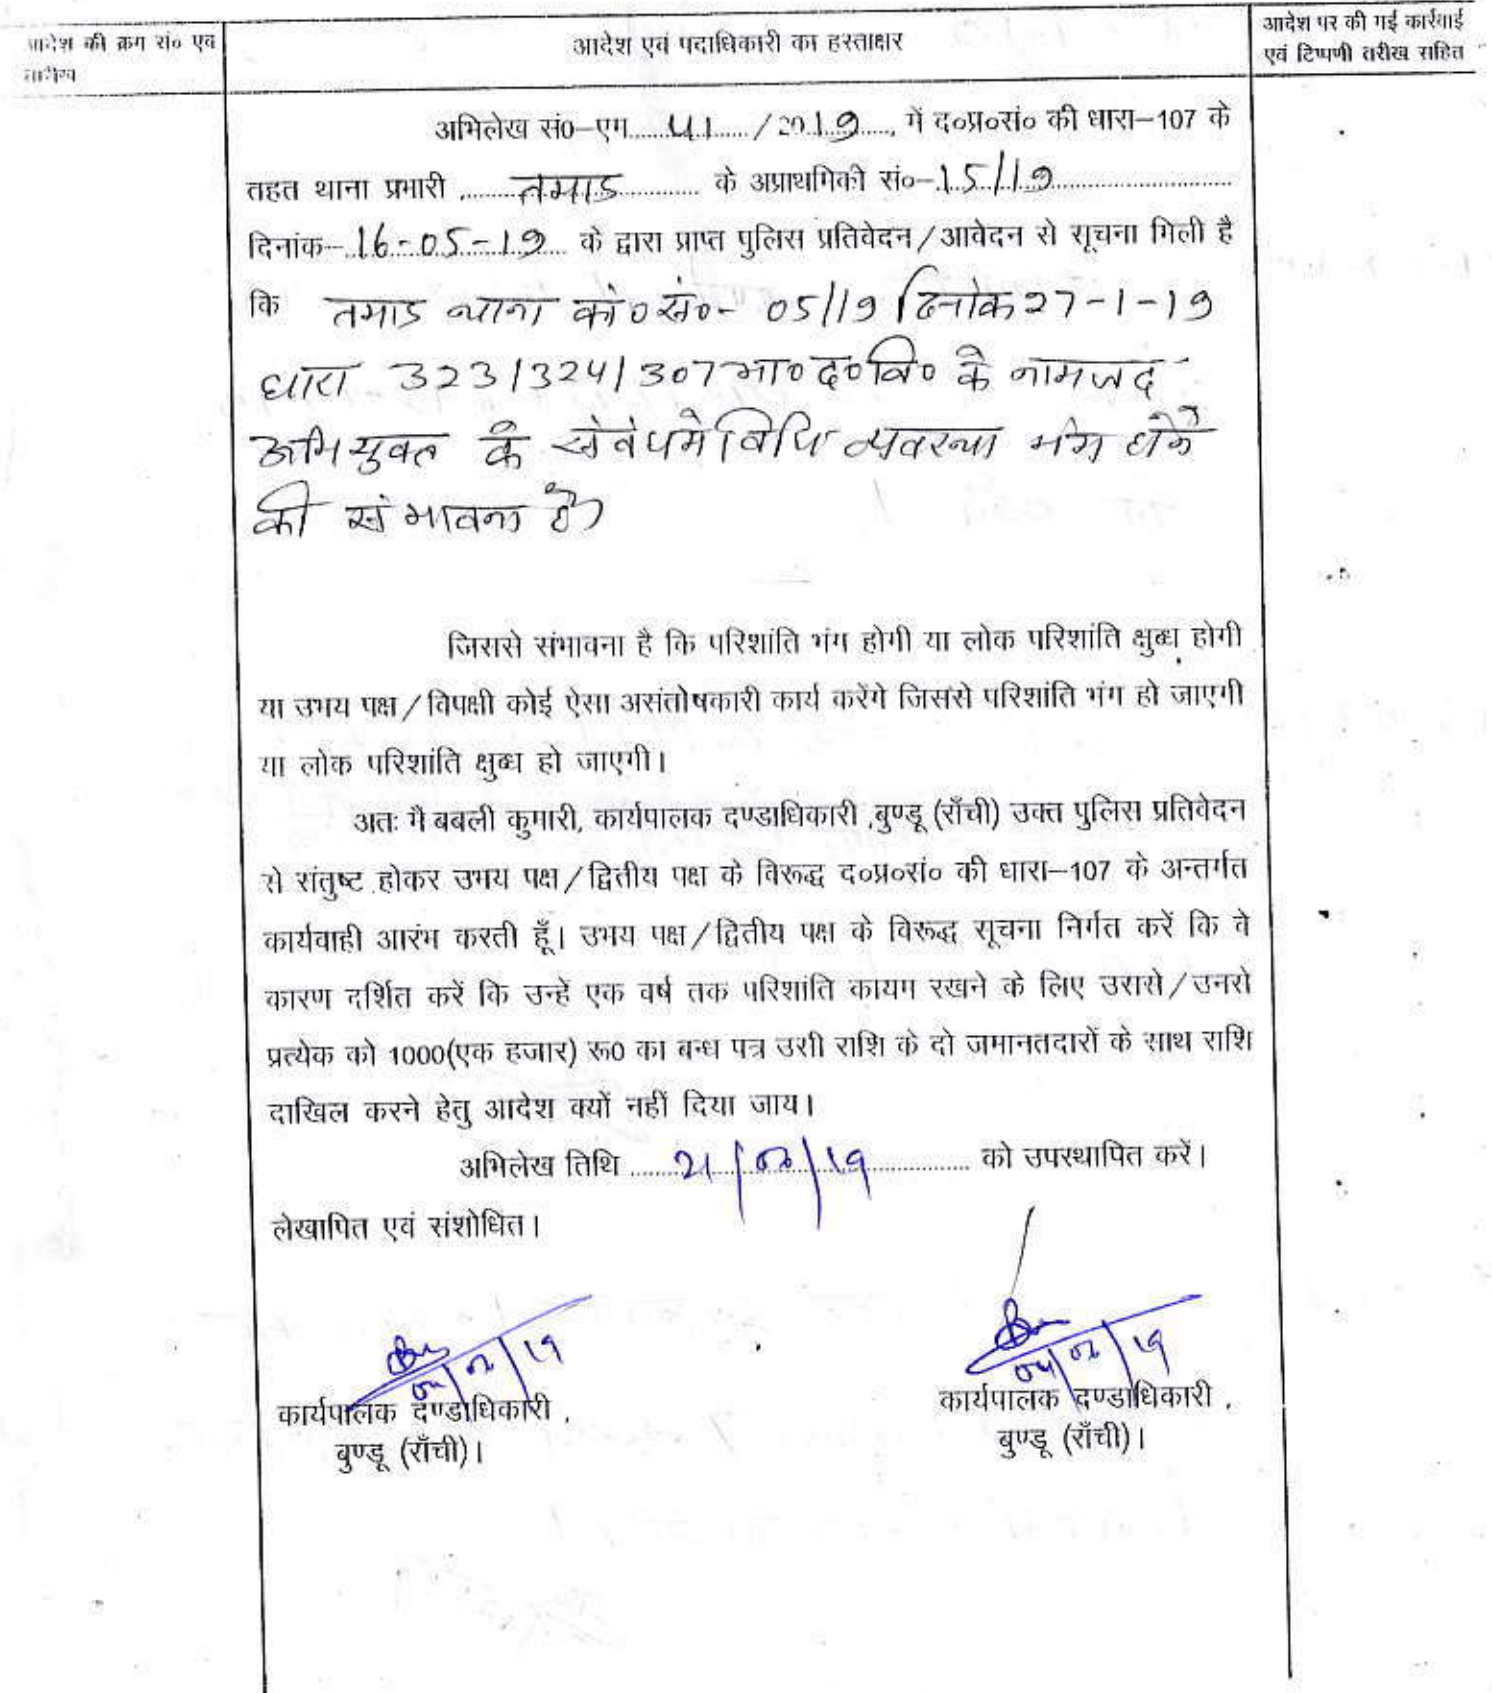 आदेश की क्रम सं० एवं तारीख
आदेश एवं पदाधिकारी का हस्ताक्षर
आदेश पर की गई कार्रवाई
एवं टिप्पणी तारीख सहित
अभिलेख सं0–एम 41 / 2019, में द०प्र०सं० की धारा–107 के
तहत थाना प्रभारी तमाड़ के अप्राथमिकी सं०– 15/19
दिनांक– 16-05-19 के द्वारा प्राप्त पुलिस प्रतिवेदन/आवेदन से सूचना मिली है
कि तमाड थाना कां० सं०- 05/19 दिनांक 27-1-19
धारा 323/324/307 भा० द० वि० के नामजद
अभियुक्त के संबंध में विधि व्यवस्था भंग होने
की संभावना है।
जिससे संभावना है कि परिशांति भंग होगी या लोक परिशांति क्षुब्ध होगी
या उभय पक्ष/विपक्षी कोई ऐसा असंतोषकारी कार्य करेंगे जिससे परिशांति भंग हो जाएगी
या लोक परिशांति क्षुब्ध हो जाएगी।
अतः मै बबली कुमारी, कार्यपालक दण्डाधिकारी ,बुण्डू (राँची) उक्त पुलिस प्रतिवेदन
से संतुष्ट होकर उभय पक्ष/द्वितीय पक्ष के विरूद्ध द०प्र०सं० की धारा–107 के अन्तर्गत
कार्यवाही आरंभ करती हूँ। उभय पक्ष/द्वितीय पक्ष के विरूद्ध सूचना निर्गत करें कि वे
कारण दर्शित करें कि उन्हें एक वर्ष तक परिशांति कायम रखने के लिए उससे/उनसे
प्रत्येक को 1000(एक हजार) रू0 का बन्ध पत्र उसी राशि के दो जमानतदारों के साथ राशि
दाखिल करने हेतु आदेश क्यों नहीं दिया जाय।
अभिलेख तिथि 21/ /19 को उपस्थापित करें।
लेखापित एवं संशोधित।
04/ /19
04/ /19
कार्यपालक दण्डाधिकारी ,
बुण्डू (राँची)।
कार्यपालक दण्डाधिकारी ,
बुण्डू (राँची)।